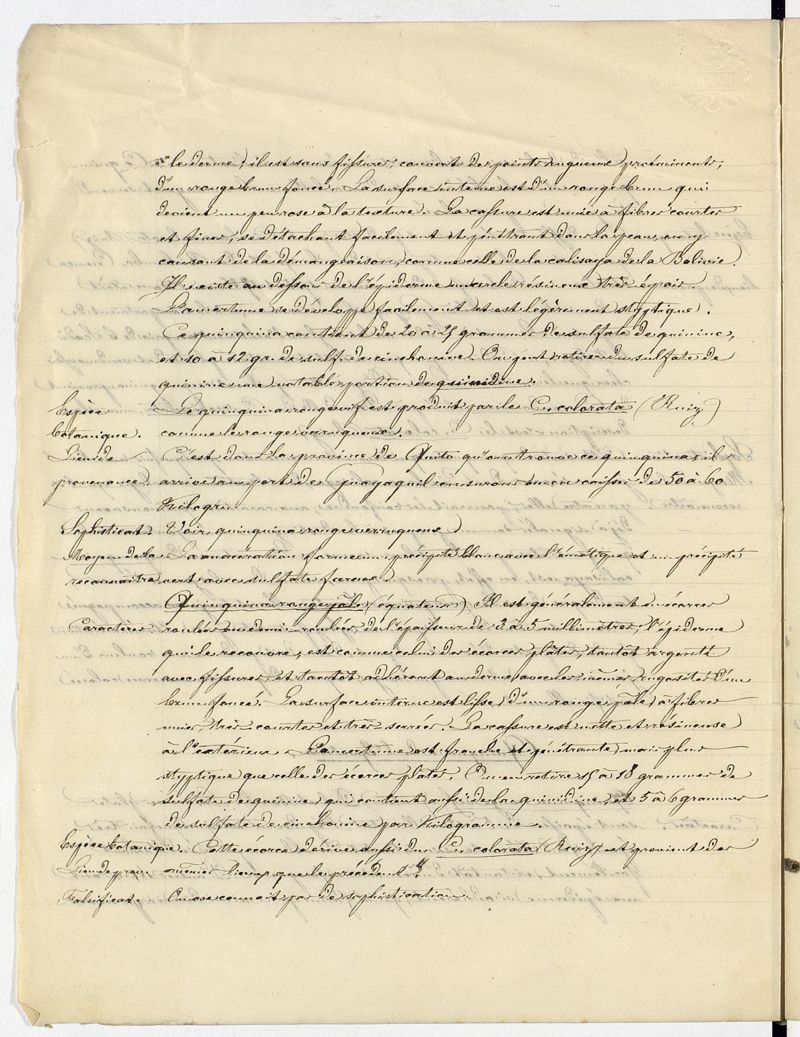 le derme, il est sans fissures, couvert de points rugueux proéminents,
d'un rouge brun foncé. La surface interne est d'un rouge brun qui
devient un peu rose à la texture. La cassure est unie à fibres courtes
et fines, se détachant facilement et pénétrant dans la peau en y
causant de la démangeaison, comme celle de la calisaya de la Bolivie.
Il existe au dessous de l'épiderme un cercle résineux très épais.
L'amertume se développe facilement et est légèrement styptique.
Ce quinquina contient de 20 à 25 grammes de sulfate de quinine,
et 10 à 12 gr. de sulf. de cinchonine. On peut retirer du sulfate de
quinine une notable portion de quinidine.
Espèce Le quinquina rouge vif est produit par le C. colorata (Ruiz)
botanique. comme le rouge verruqueux.
Lieu de C'est dans la province de Quito qu'on trouve ce quinquina; il
provenance. arrive au port de guayaquil en surons ou en caisses de 50 à 60
Kilogr.
Sophisticat. Voir quinquina rouge verruqueux
Moyen de la La macération forme un précipité blanc avec l'émétique et un précipité
reconnaître vert avec sulfate ferreux.
Quinquina rouge pâle (équateur) Il est généralement en écorces
Caractères: roulées ou demi-roulées, de l'épaisseur de 2 à 5 millimètres; l'épiderme
qui le recouvre, est comme celui des écorces plates, tantôt argenté
avec fissures, et tantôt adhérent au derme avec les mêmes rugosités d'un
brun foncé. La surface interne est lisse, d'un rouge pâle, à fibres
unies, très courtes et très serrées. La cassure est nette et résineuse
à l'extérieur. L'amertume est franche et pénétrante, mais plus
styptique que celle des écorces plates. On en retire 15 à 18 grammes de
sulfate de quinine, qui contient aussi de la quinidine, et 5 à 6 grammes
de sulfate de cinchonine par Kilogramme.
Espèce botanique. Cette écorce dérive aussi du C. colorata (Ruiz) et provient des
Lieu de prov. mêmes lieux que le précédent.
Falsificat. On ne connait pas de sophistication.